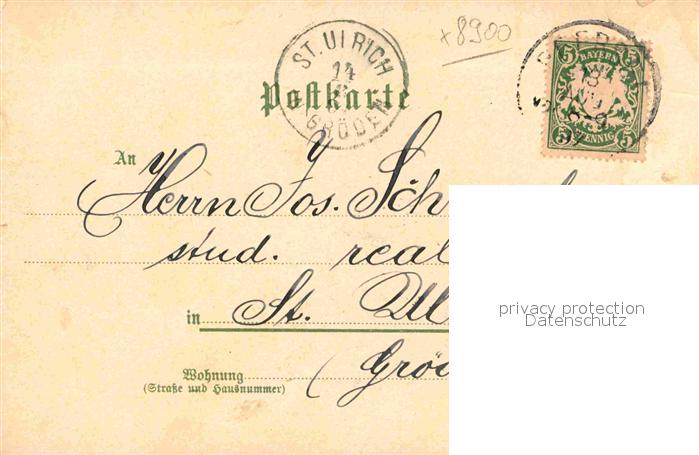 ×8900
ST. ULRICH
14
GRÖDEN
5 BAYERN 5
5 PFENNIG 5
Postkarte
An
Herrn Jos. Sch
stud. real
privacy protection
Datenschutz
in St. Ul
Wohnung
(Straße und Hausnummer)
(Gröd